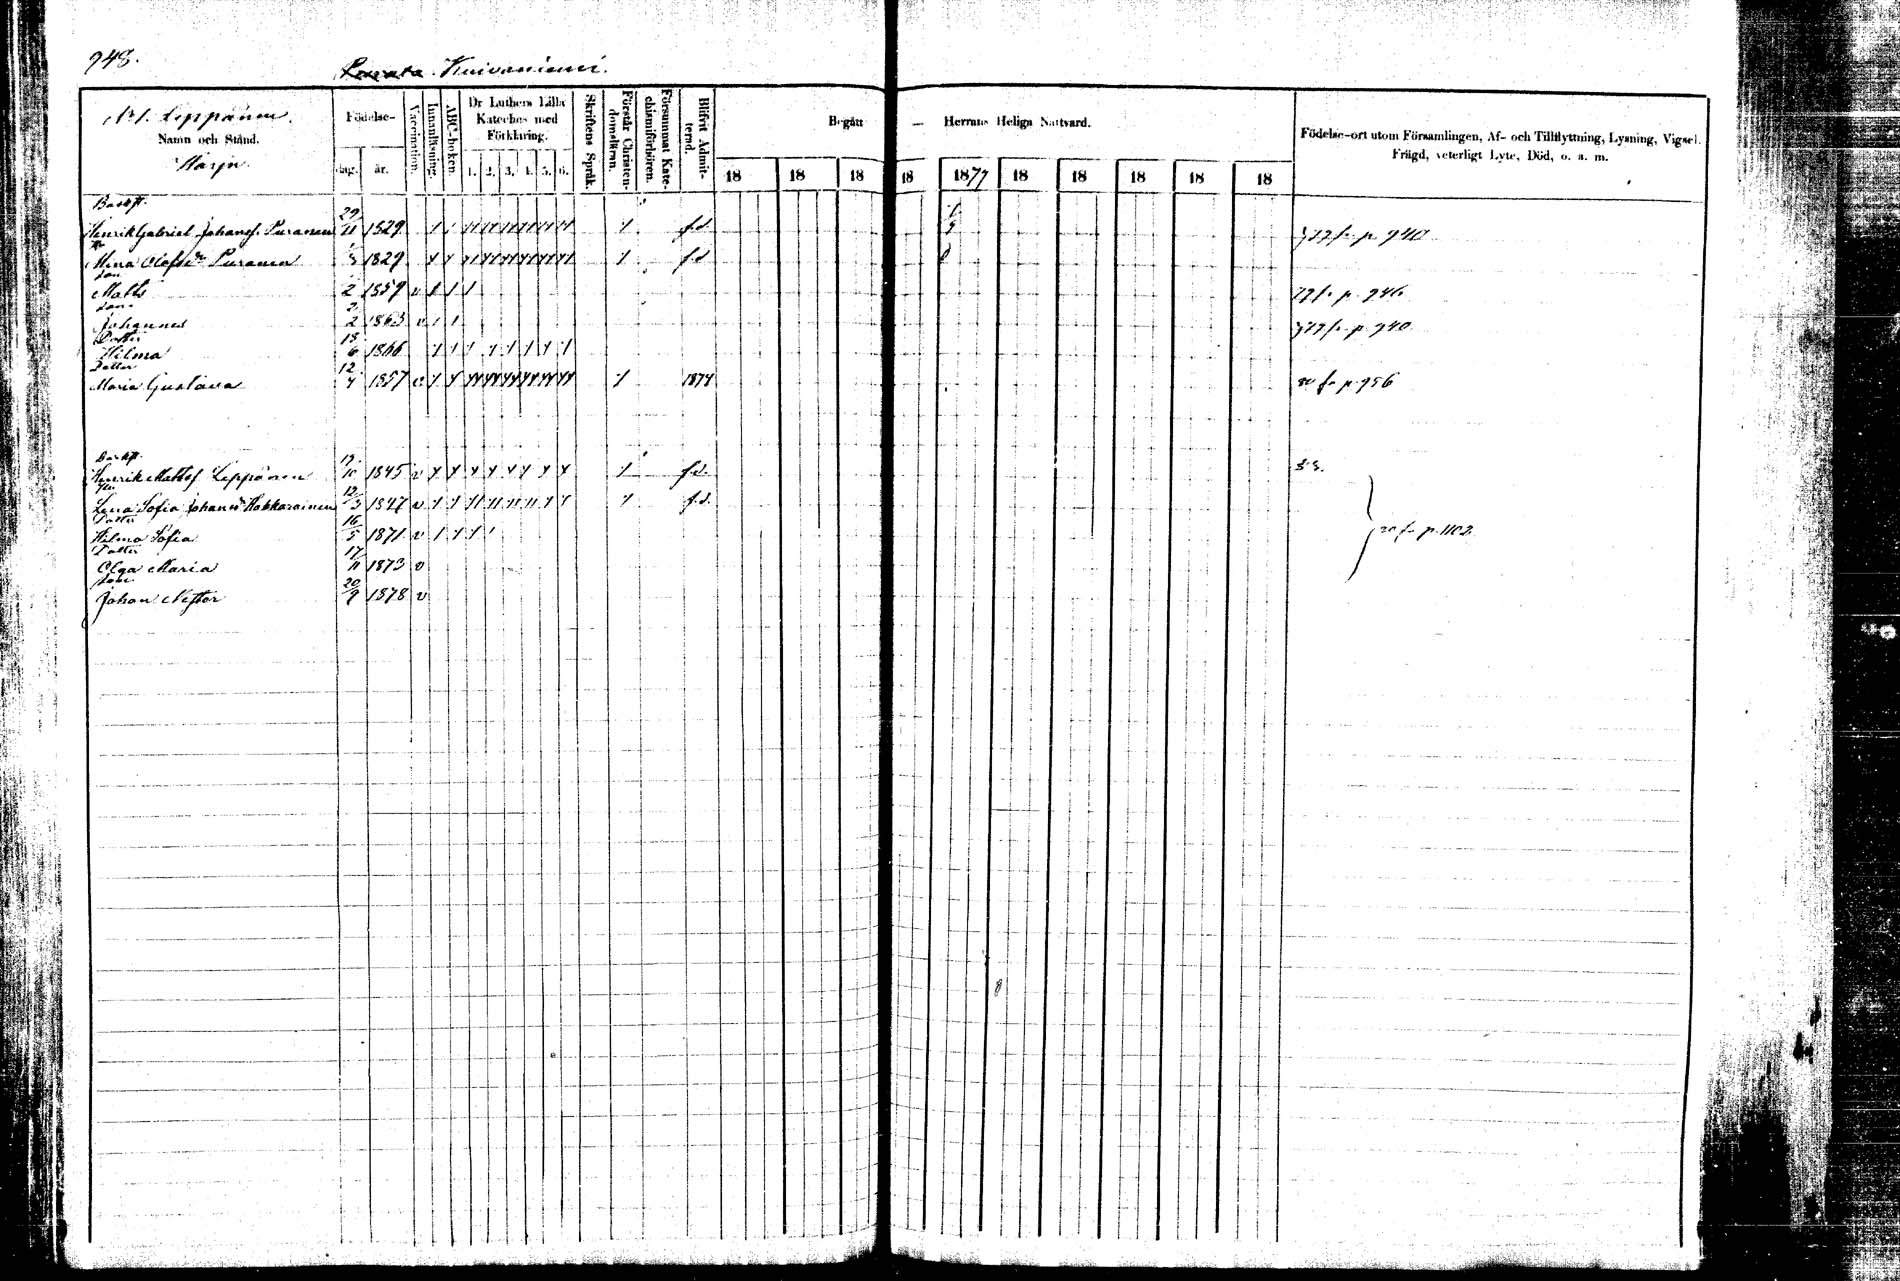 948.
Kuivaniemi.
No 1. Leppänen.
Namn och Stånd.
Födelse-
dag. år.
Vaccination.
Innanläsning.
ABC-boken.
Dr Luthers Lilla Kateches med Förklaring.
1. 2. 3. 4. 5. 6.
Skriftens Språk.
Förstår Christendomsläran.
Försummat Katechismiförhören.
Blifvit Admitterad.
Begått — Herrans Heliga Nattvard.
18 18 18 18 1877 18 18 18 18 18
Födelse-ort utom Församlingen, Af- och Tillflyttning, Lysning, Vigsel.
Frägd, veterligt Lyte, Död, o. s. m.
Henrik Gabriel Johansf. Puranen 29/11 1829 f.d. 77 fr. p. 940
Mina Olofsdr Puranen 1829 f.d.
Son
Matts 2 1859 v 79 fr. p. 946
Son
Johannes 2/2 1863 v 77 fr. p. 940
Dotter
Hilma 18/6 1866
Dotter
Maria Gustava 12/4 1857 v 1874 80 fr p. 956
Henrik Mattsf Leppänen 19/10 1845 v f.d.
Lena Sofia Johansdr Kokkarainen 12/3 1847 v f.d.
Dotter
Hilma Sofia 16/5 1871 v fr p. 1102
Dotter
Olga Maria 17/11 1873 v
Son
Johan Nestor 20/9 1878 v